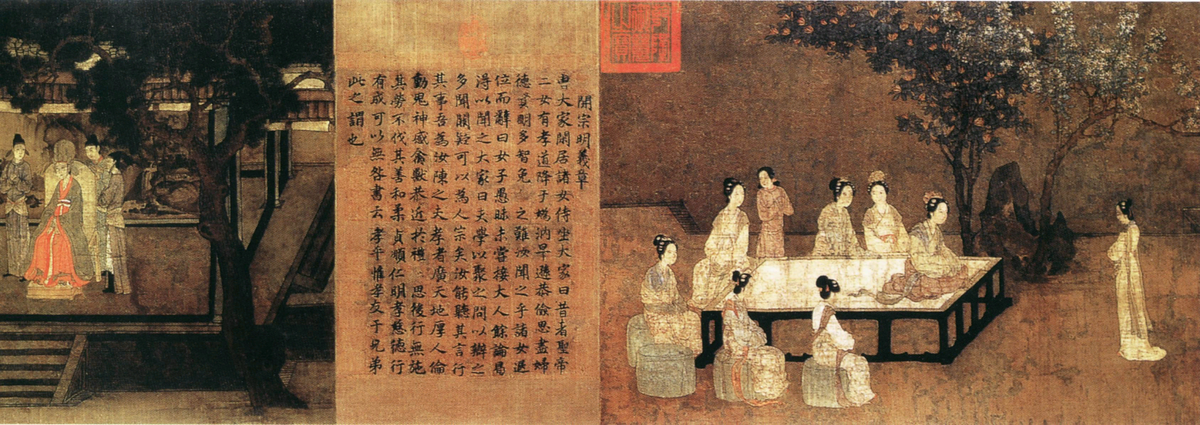 開宗明義章
曹大家閑居諸女侍坐大家曰昔者聖帝
二女有孝道降于媯汭卑遜恭儉思盡婦
德賢明多智免之難汝聞之乎諸女退
位而辭曰女子愚昧未嘗接大人餘論曷
得以聞之大家曰夫學以聚之問以辯之
多聞闕疑可以為人宗矣汝能聽其言行
其事吾為汝陳之夫孝者廣天地厚人倫
動鬼神感禽獸恭近於禮三思後行無施
其勞不伐其善和柔貞順仁明孝慈德行
有成可以無咎書云孝乎惟孝友于兄弟
此之謂也